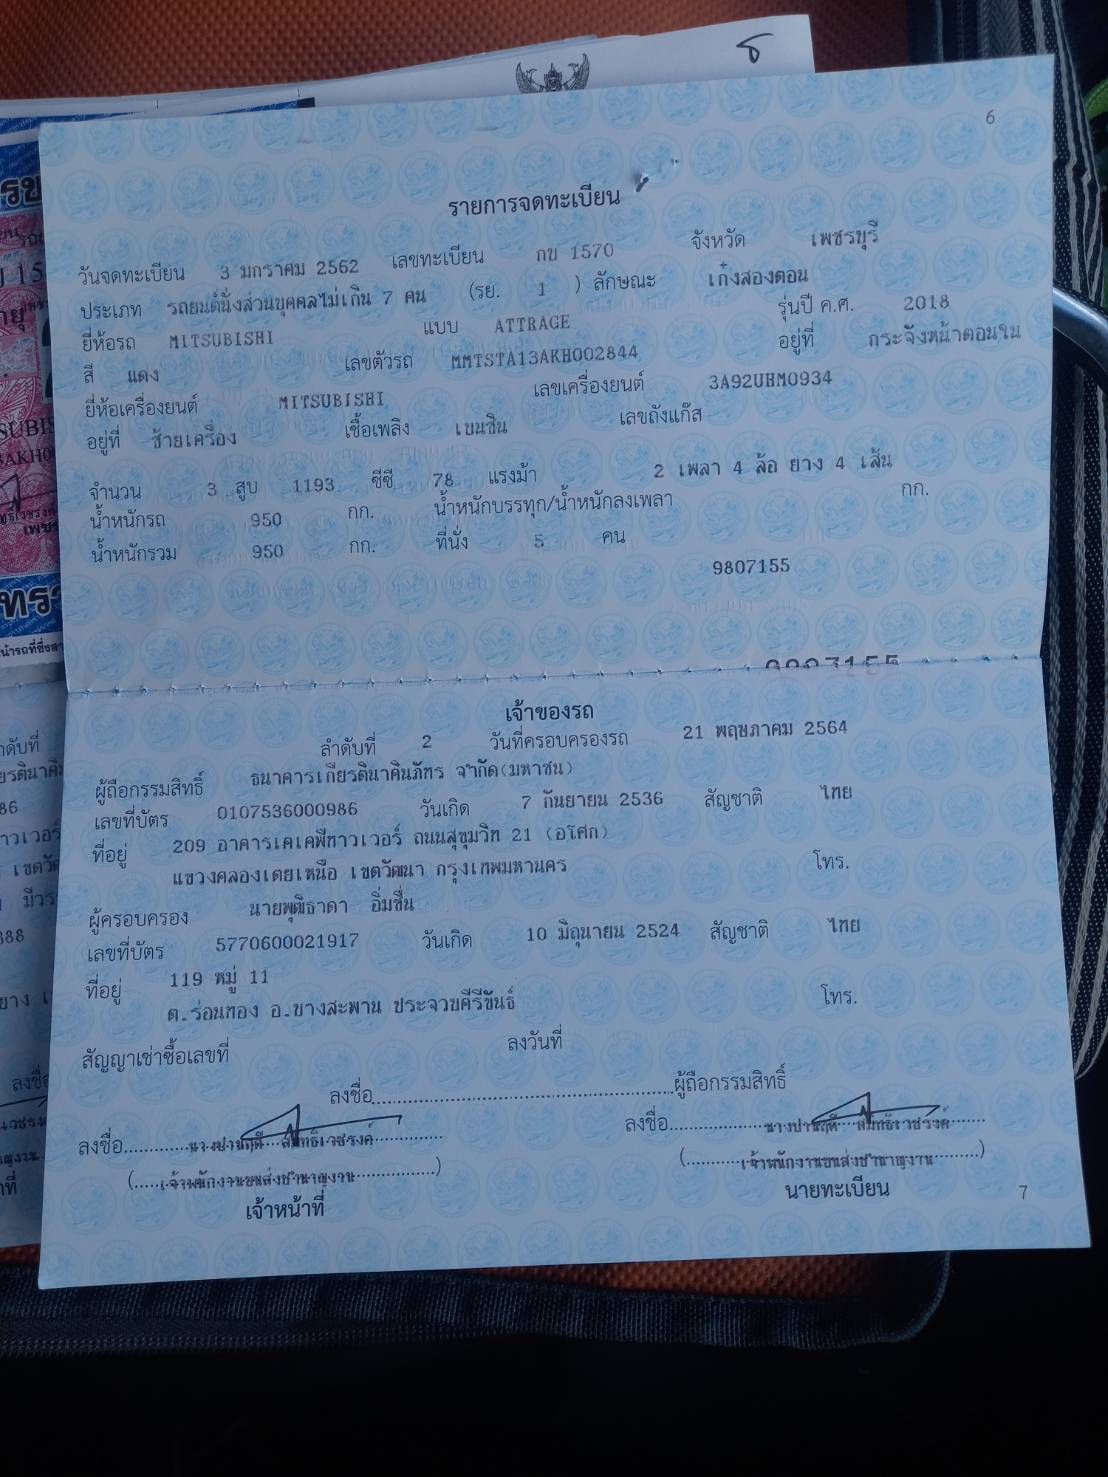 6
รายการจดทะเบียน
วันจดทะเบียน 3 มกราคม 2562 เลขทะเบียน กข 1570 จังหวัด เพชรบุรี
ประเภท รถยนต์นั่งส่วนบุคคลไม่เกิน 7 คน (รย. 1 ) ลักษณะ เก๋งสองตอน
ยี่ห้อรถ MITSUBISHI แบบ ATTRAGE รุ่นปี ค.ศ. 2018
สี แดง เลขตัวรถ MMTSTA13AKH002844 อยู่ที่ กระจังหน้าตอนใน
ยี่ห้อเครื่องยนต์ MITSUBISHI เลขเครื่องยนต์ 3A92UHM0934
อยู่ที่ ซ้ายเครื่อง เชื้อเพลิง เบนซิน เลขถังแก๊ส
จำนวน 3 สูบ 1193 ซีซี 78 แรงม้า 2 เพลา 4 ล้อ ยาง 4 เส้น
น้ำหนักรถ 950 กก. น้ำหนักบรรทุก/น้ำหนักลงเพลา กก.
น้ำหนักรวม 950 กก. ที่นั่ง 5 คน
9807155
เจ้าของรถ
ลำดับที่ 2 วันที่ครอบครองรถ 21 พฤษภาคม 2564
ผู้ถือกรรมสิทธิ์ ธนาคารเกียรตินาคินภัทร จำกัด(มหาชน)
เลขที่บัตร 0107536000986 วันเกิด 7 กันยายน 2536 สัญชาติ ไทย
ที่อยู่ 209 อาคารเคเคพีทาวเวอร์ ถนนสุขุมวิท 21 (อโศก)
แขวงคลองเตยเหนือ เขตวัฒนา กรุงเทพมหานคร โทร.
ผู้ครอบครอง นายพุฒิธาดา อิ่มชื่น
เลขที่บัตร 5770600021917 วันเกิด 10 มิถุนายน 2524 สัญชาติ ไทย
ที่อยู่ 119 หมู่ 11
ต.ร่อนทอง อ.บางสะพาน ประจวบคีรีขันธ์ โทร.
สัญญาเช่าซื้อเลขที่ ลงวันที่
ลงชื่อ ผู้ถือกรรมสิทธิ์
ลงชื่อ ลงชื่อ
(เจ้าพนักงานขนส่งชำนาญงาน) (เจ้าพนักงานขนส่งชำนาญงาน)
เจ้าหน้าที่ นายทะเบียน
7